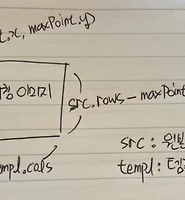 t.x, maxPoint.y)
이미지
src.rows - maxPoint
templ.cols
src :
templ :